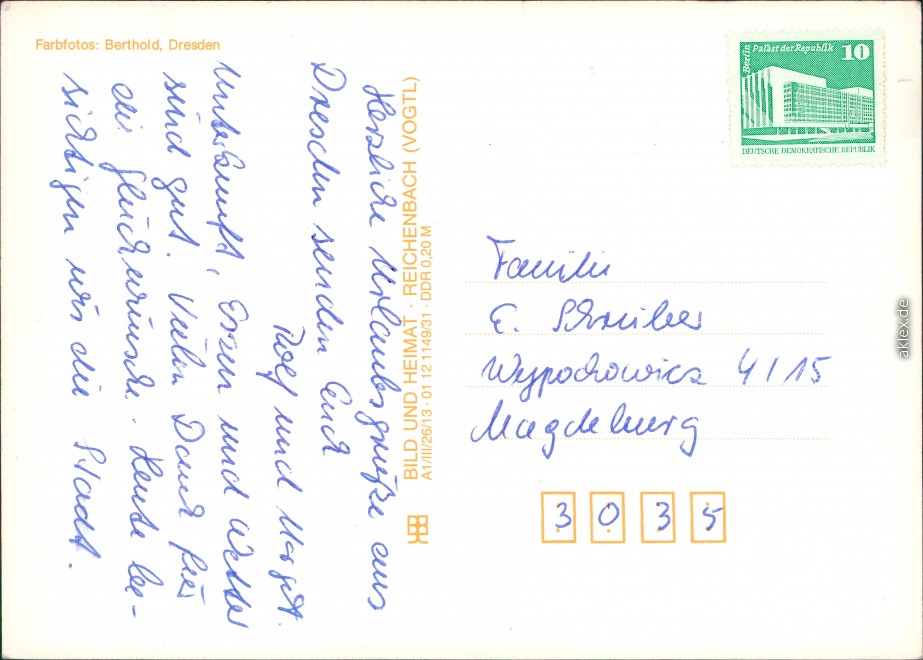 Farbfotos: Berthold, Dresden
Herzliche Urlaubsgrüße aus
Dresden senden Euch
Rolf und Margit.
Unterkunft, Essen und Wetter
sind gut. Vielen Dank für
die Glückwünsche. Heute be-
sichtigen wir die Stadt.
BILD UND HEIMAT · REICHENBACH (VOGTL)
A1/III/26/13 · 01 12 1149/31 · DDR 0,20 M
Berlin Palast der Republik 10
DEUTSCHE DEMOKRATISCHE REPUBLIK
Familie
E. Schreiber
Wypochowicz 4 / 15
Magdeburg
3035
aklex.de